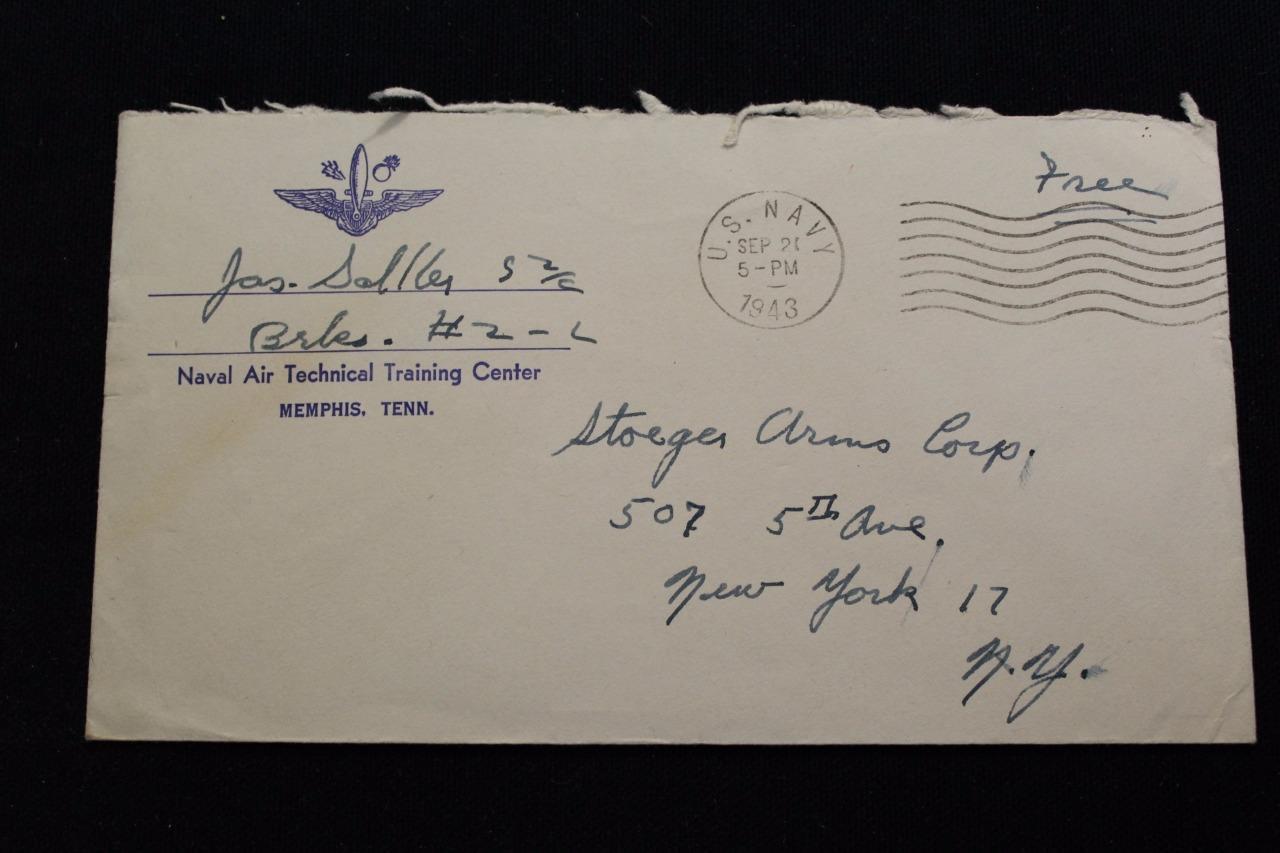 Free
U.S. NAVY
SEP 21
5-PM
1943
Jas. S 2/c
Brks. #2-L
Naval Air Technical Training Center
MEMPHIS, TENN.
Stoeger Arms Corp.
507 5th Ave.
New York 17
N.Y.